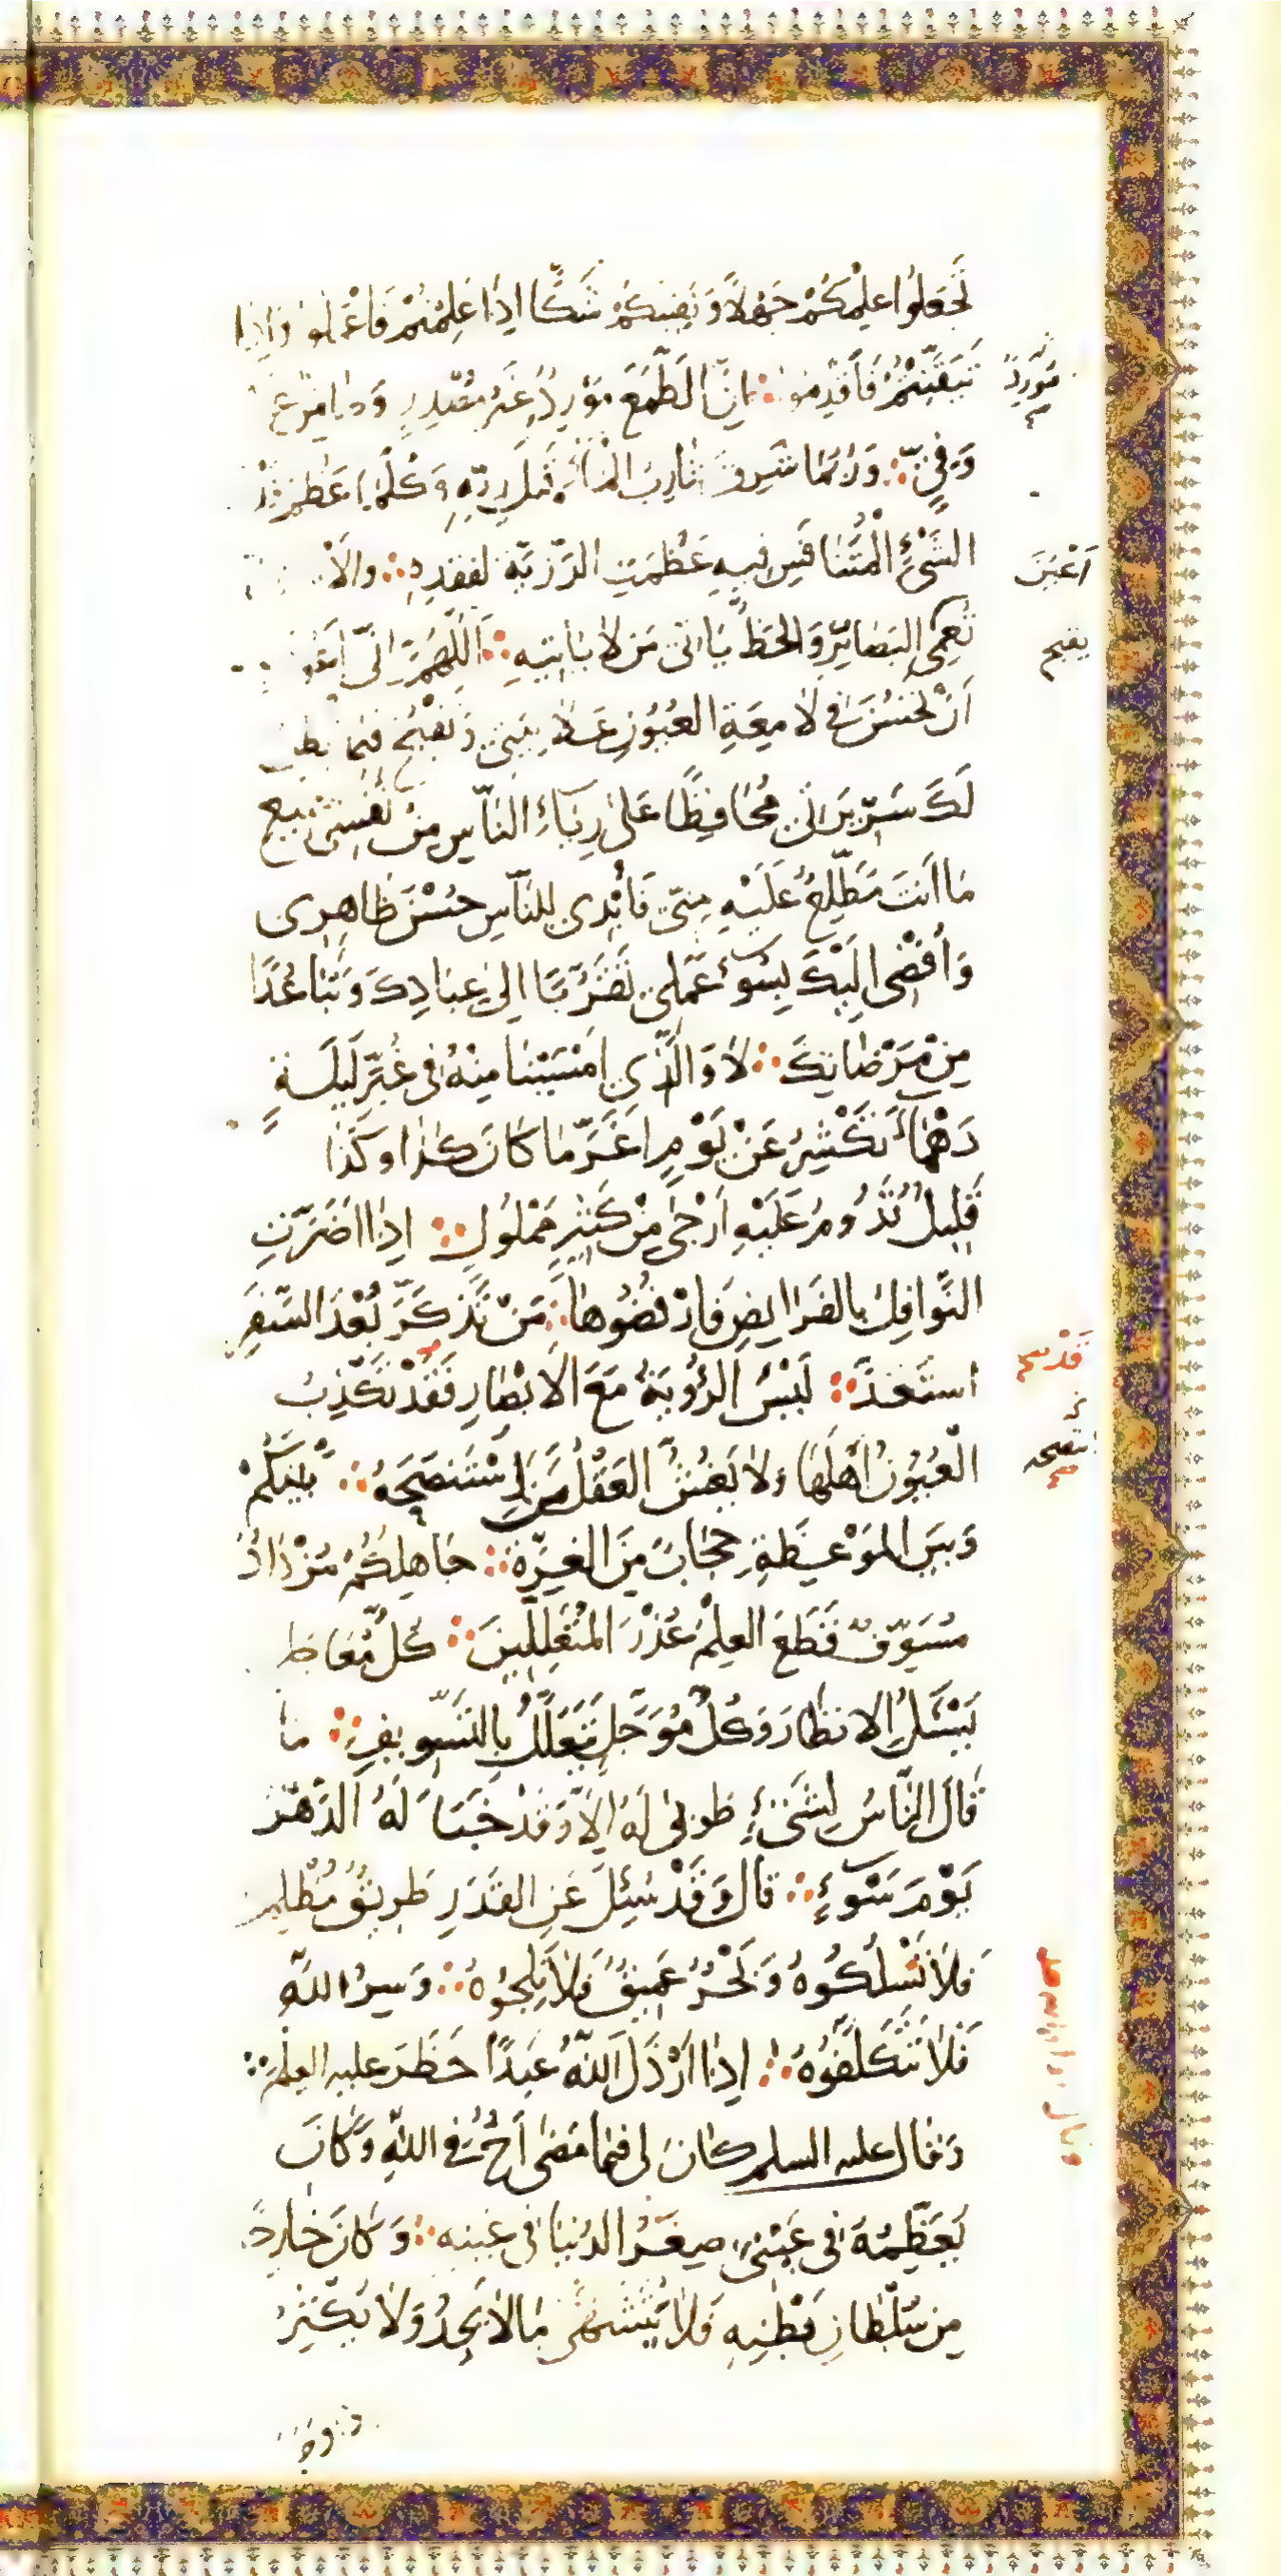 تَجْعَلُوا عِلْمَكُمْ جَهْلاً وَيَقِينَكُمْ شَكًّا اِذَا عَلِمْتُمْ فَاعْمَلُوا وَاِذَا
تَيَقَّنْتُمْ فَاَقْدِمُوا اِنَّ الطَّمَعَ مُوْرِدٌ غَيْرُ مُصْدِرٍ وَضَامِنٌ غَيْرُ
وَفِيٍّ وَرُبَّمَا شَرِقَ شَارِبُ المَاءِ قَبْلَ رِيِّهِ وَكُلَّمَا عَظُمَ قَدْرُ
الشَّيْءِ الْمُتَنَافَسِ فِيهِ عَظُمَتِ الرَّزِيَّةُ لِفَقْدِهِ وَالاَ
تُعْمِي البَصَائِرَ وَالحَظُّ يَاْتِي مَنْ لاَ يَاْتِيهِ اَللّٰهُمَّ اِنِّي اَعُوذُ
اَنْ تَحْسُنَ فِي لاَمِعَةِ العُيُونِ عَلاَنِيَتِي وَتَقْبُحَ فِيمَا اُبْطِنُ
لَكَ سَرِيرَتِي مُحَافِظًا عَلَى رِيَاءِ النَّاسِ مِنْ نَفْسِي بِجَمِيعِ
مَا اَنتَ مُطَّلِعٌ عَلَيْهِ مِنِّي فَاُبْدِيَ لِلنَّاسِ حُسْنَ ظَاهِرِي
وَاُفْضِي اِلَيْكَ بِسُوءِ عَمَلِي تَقَرُّبًا اِلَى عِبَادِكَ وَتَبَاعُدًا
مِنْ مَرْضَاتِكَ لاَ وَالَّذِي اَمْسَيْنَا مِنْهُ فِي غُبَّرِ لَيْلَةٍ
دَهْمَاءَ تَكْشِرُ عَنْ يَوْمٍ اَغَرَّ مَا كَانَ كَذَا وَكَذَا
قَلِيلٌ تَدُومُ عَلَيْهِ اَرْجَى مِنْ كَثِيرٍ مَمْلُولٍ اِذَا اَضَرَّتِ
النَّوَافِلُ بِالفَرَائِضِ فَارْفُضُوهَا مَنْ تَذَكَّرَ بُعْدَ السَّفَرِ
اسْتَعَدَّ لَيْسَ الرُّؤْيَةُ مَعَ الاَبْصَارِ فَقَدْ تَكْذِبُ
الْعُيُونُ اَهْلَهَا وَلاَ يَغُشُّ العَقْلُ مَنِ اسْتَنْصَحَهُ بَيْنَكُمْ
وَبَيْنَ المَوْعِظَةِ حِجَابٌ مِنَ الغِرَّةِ جَاهِلُكُمْ مُزْدَادٌ
مُسَوِّفٌ قَطَعَ العِلْمُ عُذْرَ المُتَعَلِّلِينَ كُلُّ مُعَاجَلٍ
يَسْئَلُ الاِنظَارَ وَكُلُّ مُؤَجَّلٍ يَتَعَلَّلُ بِالتَّسْوِيفِ مَا
قَالَ النَّاسُ لِشَيْءٍ طُوبَى لَهُ اِلاَّ وَقَدْ خَبَاَ لَهُ الدَّهْرُ
يَوْمَ سَوْءٍ قَالَ وَقَدْ سُئِلَ عَنِ القَدَرِ طَرِيقٌ مُظْلِمٌ
فَلاَ تَسْلُكُوهُ وَبَحْرٌ عَمِيقٌ فَلاَ تَلِجُوهُ وَسِرُّ اللهِ
فَلاَ تَتَكَلَّفُوهُ اِذَا اَرْذَلَ اللهُ عَبْدًا حَظَرَ عَلَيْهِ العِلْمَ
وَقَالَ عليه السلم كَانَ لِي فِيمَا مَضَى اَخٌ فِي اللهِ وَكَانَ
يُعَظِّمُهُ فِي عَيْنِي صِغَرُ الدُّنْيَا فِي عَيْنِهِ وَكَانَ خَارِجًا
مِن سُلْطَانِ بَطْنِهِ فَلاَ يَتَشَهَّى مَا لاَ يَجِدُ وَلاَ يُكْثِرُ